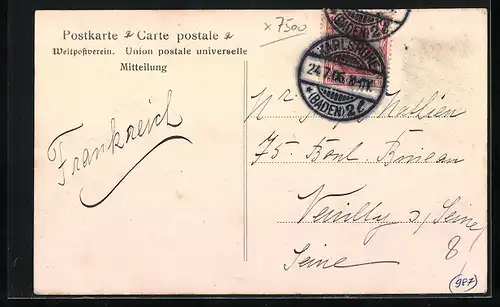 x 7500
Postkarte * Carte postale *
Weltpostverein. Union postale universelle
Mitteilung
(BADEN) 2l
KARLSRUHE
24.7.06. 8-9V.
* (BADEN) 2l
Frankreich
Mr Mathieu
75. Boul. Bineau
Neuilly s/ Seine
Seine
8
(987)